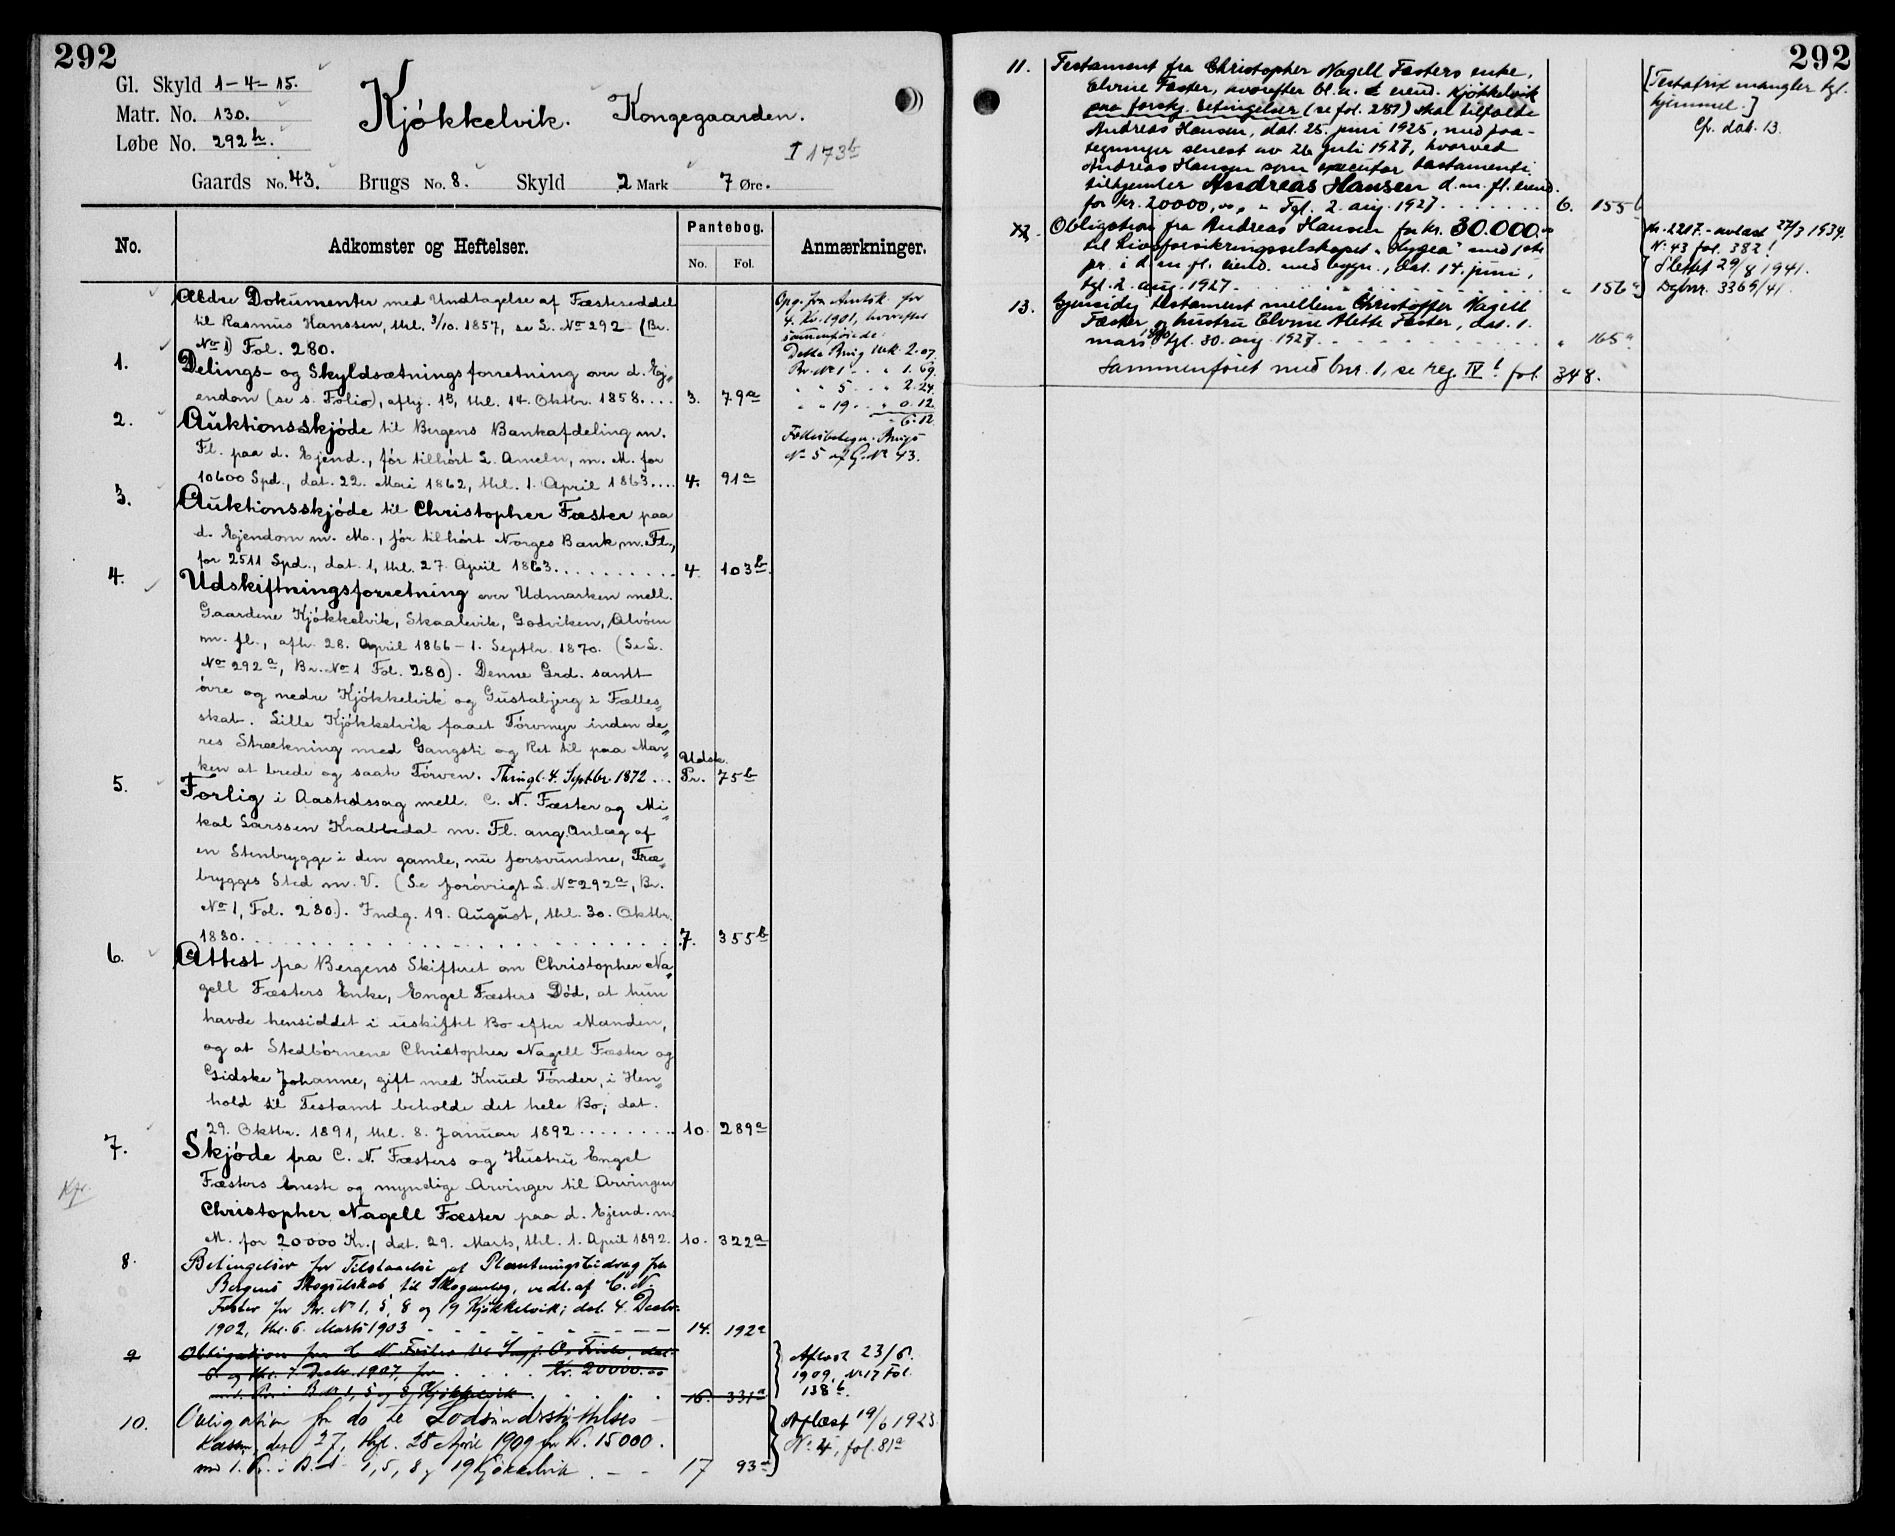 292
Gl. Skyld 1-4-15.
Matr. No. 130.
Løbe No. 292 h.
Kjøkkelvik. Kongegaarden.
I 173b
Gaards No. 43. Brugs No. 8. Skyld 2 Mark 7 Øre.
No. Adkomster og Heftelser. Pantebog. No. Fol. Anmærkninger.
Ældre Dokumenter med Undtagelse af Fæsteseddel
til Rasmus Hanssen, thl. 3/10. 1857, se L. No 292 (Br.
No 1) Fol. 280.
1. Delings- og Skyldsætningsforretning over d. Ej„
endom (se s. Folio), afhj. 13, thl. 14. Oktbr. 1858.... 3. 79a
2. Auktionsskjøde til Bergens Bankafdeling m.
Fl. paa d. Ejend., før tilhørt L. Ameln, m. M. for
10600 Spd., dat. 22. Mai 1862, thl. 1. April 1863.... 4. 91a
3. Auktionsskjøde til Christopher Fæster paa
d. Ejendom m. Mo., før tilhørt Norges Bank m. Fl.,
for 2511 Spd., dat. 1, thl. 27. April 1863........... 4 103b.
4. Udskiftningsforretning over Udmarken mell.
Gaardene Kjøkkelvik, Skaalevik, Godviken, Alvøen
m. fl., afh. 28. April 1866 - 1. Septbr. 1870. (Se L.
No 292a, Br. No 1 Fol. 280). Denne Grd. samt
øvre og nedre Kjøkkelvik og Gustabjerg i Fælles„
skab. Lille Kjøkkelvik faaet Tørvmyr inden de„
res Strækning med Gangsti og Ret til paa Mar„
ken at brede og saate Tørven. Thingl. 4. Septbr. 1872... Udsk. Pr. 75b
5. Forlig i Aastedssag mell. C. N. Fæster og Mi„
kal Larssen Krabbedal m. Fl. ang. Anlæg af
en Stenbrygge i den gamle, nu forsvundne, Træ„
brygges Sted m. V. (Se forøvrigt L. No 292a, Br.
No 1, Fol. 280.). Indg. 19. August, thl. 30. Oktbr.
1880............ 7. 355b
6. Attest fra Bergens Skifteret om Christopher Na„
gell Fæsters Enke, Engel Fæsters Død, at hun
havde hensiddet i uskiftet Bo efter Manden,
og at Stedbørnene Christopher Nagell Fæster og
Gidske Johanne, gift med Knud Tønder, i Hen„
hold til Testamt beholde det hele Bo; dat.
29. Oktbr. 1891, thl. 8. Januar 1892......... 10. 289a
7. Skjøde fra C. N. Fæsters og Hustru Engel
Fæsters eneste og myndige Arvinger til Arvingen
Kfr.
Christopher Nagell Fæster paa d. Ejend. m.
M. for 20000 Kr., dat. 29. Marts, thl. 1. April 1892. 10. 322a
8. Betingelser for Tilstaaelse af Plantningsbidrag fra
Bergens Skogselskab til Skoganlæg, vedt. af C. N.
Fæster for Br. No 1, 5, 8 og 19 Kjøkkelvik; dat. 4. Decbr.
1902, thl. 6. Marts 1903 14. 192a
9 Obligation fra C N Fæster til
6 og thl. 7 Decbr. 1907, for .... Kr. 20000.00
i B. No 1, 5 og 8 Kjøkkelvik 16. 331a
10. Obligation fra do te Lodsunderstøttelses
kassen, dat. 27, thgl. 28 April 1909 for Kr. 15000.
m 1. Pr. i B. 1, 5, 8 og 19 Kjøkkelvik 17 93a
Opg. fra Amtsk. for
4. Kv. 1901, hvorefter
sammenføiede:
Dette Brug Mrk. 2.07.
Br. No 1 - - " 1.69.
" " 5 - - " 2.24.
" " 19 - - " 0.12
" 6.12.
Fællesbetegn. Brugs
No 5 af G. No 43.
Aflæst 23/6.
1909, No 17 Fol.
138b.
Aflæst 19/6 1923.
No 4, fol. 81a
292
11. Testament fra Christopher Nagell Fæsters enke,
Elvine Fæster, hvorefter bl. a. eiend. Kjøkkelvik
paa forskj. betingelser (se fol. 287) skal tilfalde
Andreas Hansen, dat. 25. juni 1925, med paa-
tegninger senest av 26 juli 1927, hvorved
Andreas Hansen som executor testamenti
tilhjemler Andreas Hansen d. m. fl. eiend.
for kr. 20000,00, Tgl. 2. aug. 1927....... 6. 155b
12. Obligation fra Andreas Hansen for kr. 30.000.00
til Livsforsikringsselskapet "Hygea" med 1ste
pr. i d. m. fl. eiend. med bygn., dat. 14. juni,
tgl. 2 aug. 1927. " 156a
13. Gjensidig testament mellem Christoffer Nagell
Fæster og hustru Elvine Alette Fæster, dat. 1.
mars 1890, tgl. 30. aug. 1927. " 165a
Sammenføiet med bnr. 1, se reg. IV b fol. 348.
[Testatrix mangler tgl.
hjemmel.]
Cfr. dok. 13.
Nr. 2217 - avlæst 27/3 1934.
No 43 fol. 382!
Slettet 29/8 1941.
Dgbnr. 3369/41.